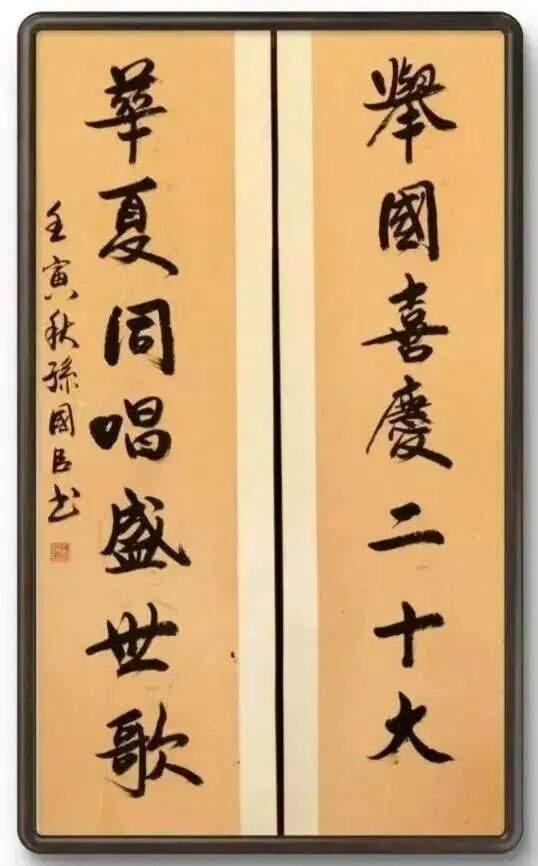 舉國喜慶二十大
華夏同唱盛世歌
壬寅秋孫國臣書